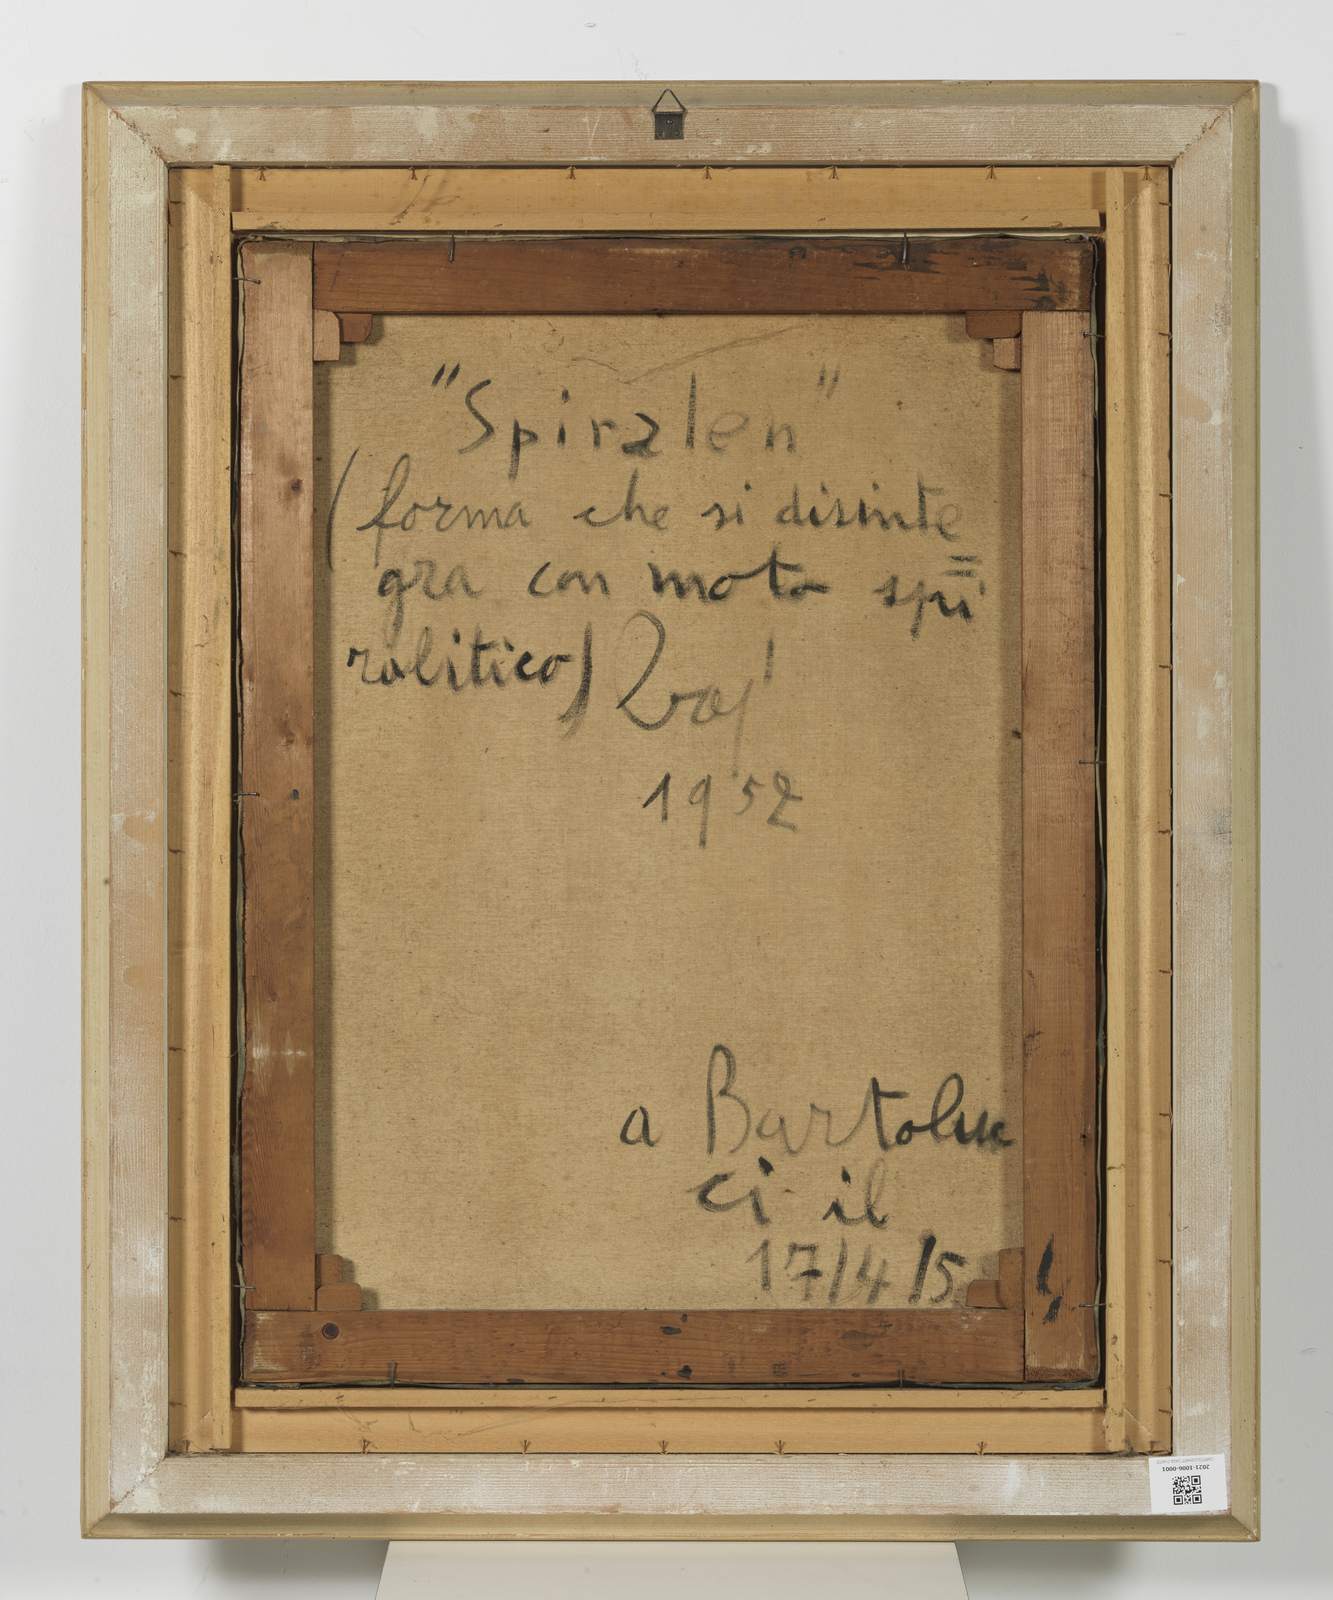 "Spiralen"
(forma che si disinte
gra con moto spi
ralitico) Baj
1952
a Bartoluc
ci il
17/4/54
2021-1006-0001